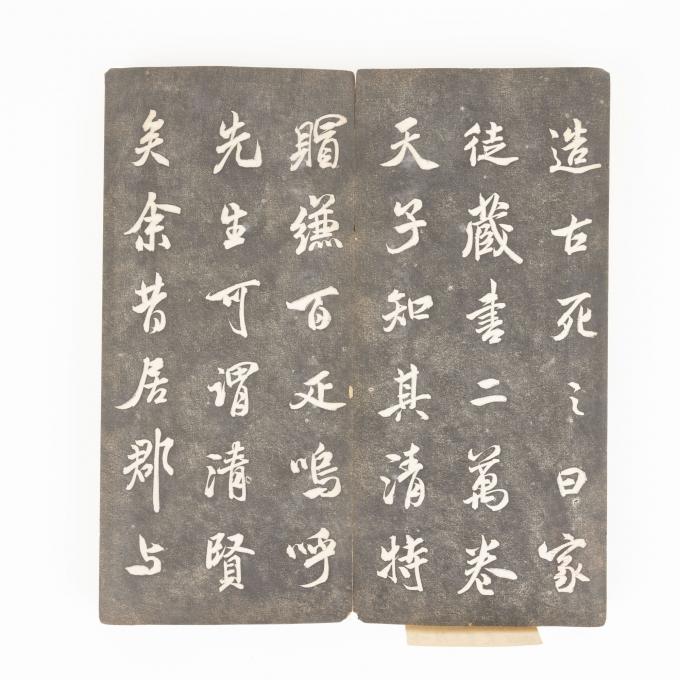 造古死之日家
徒藏書二萬卷
天子知其清特
賵縑百疋嗚呼
先生可謂清賢
矣余昔居郡与